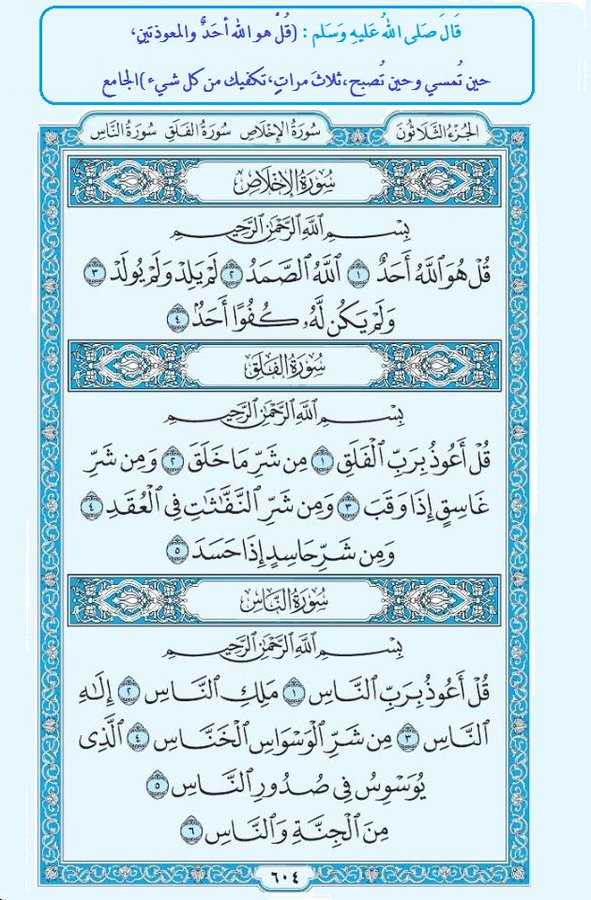 قَالَ صَلى اللهُ عَليهِ وَسَلم : (قُلْ هو الله أحَدٌ والمعوذتينِ،
حين تُمسي وحين تُصبح، ثلاثَ مراتٍ، تكفيك من كل شيء) الجامع
الجُزءُ الثَّلَاثُونَ سُورَةُ الإِخْلَاصِ سُورَةُ الفَلَقِ سُورَةُ النَّاسِ
سُورَةُ الإِخْلَاصِ
بِسْمِ اللَّهِ الرَّحْمَٰنِ الرَّحِيمِ
قُلْ هُوَ اللَّهُ أَحَدٌ ١ اللَّهُ الصَّمَدُ ٢ لَمْ يَلِدْ وَلَمْ يُولَدْ ٣
وَلَمْ يَكُن لَّهُۥ كُفُوًا أَحَدٌۢ ٤
سُورَةُ الفَلَقِ
بِسْمِ اللَّهِ الرَّحْمَٰنِ الرَّحِيمِ
قُلْ أَعُوذُ بِرَبِّ الْفَلَقِ ١ مِن شَرِّ مَا خَلَقَ ٢ وَمِن شَرِّ
غَاسِقٍ إِذَا وَقَبَ ٣ وَمِن شَرِّ النَّفَّٰثَٰتِ فِي الْعُقَدِ ٤
وَمِن شَرِّ حَاسِدٍ إِذَا حَسَدَ ٥
سُورَةُ النَّاسِ
بِسْمِ اللَّهِ الرَّحْمَٰنِ الرَّحِيمِ
قُلْ أَعُوذُ بِرَبِّ النَّاسِ ١ مَلِكِ النَّاسِ ٢ إِلَٰهِ
النَّاسِ ٣ مِن شَرِّ الْوَسْوَاسِ الْخَنَّاسِ ٤ الَّذِى
يُوَسْوِسُ فِى صُدُورِ النَّاسِ ٥
مِنَ الْجِنَّةِ وَالنَّاسِ ٦
٦٠٤